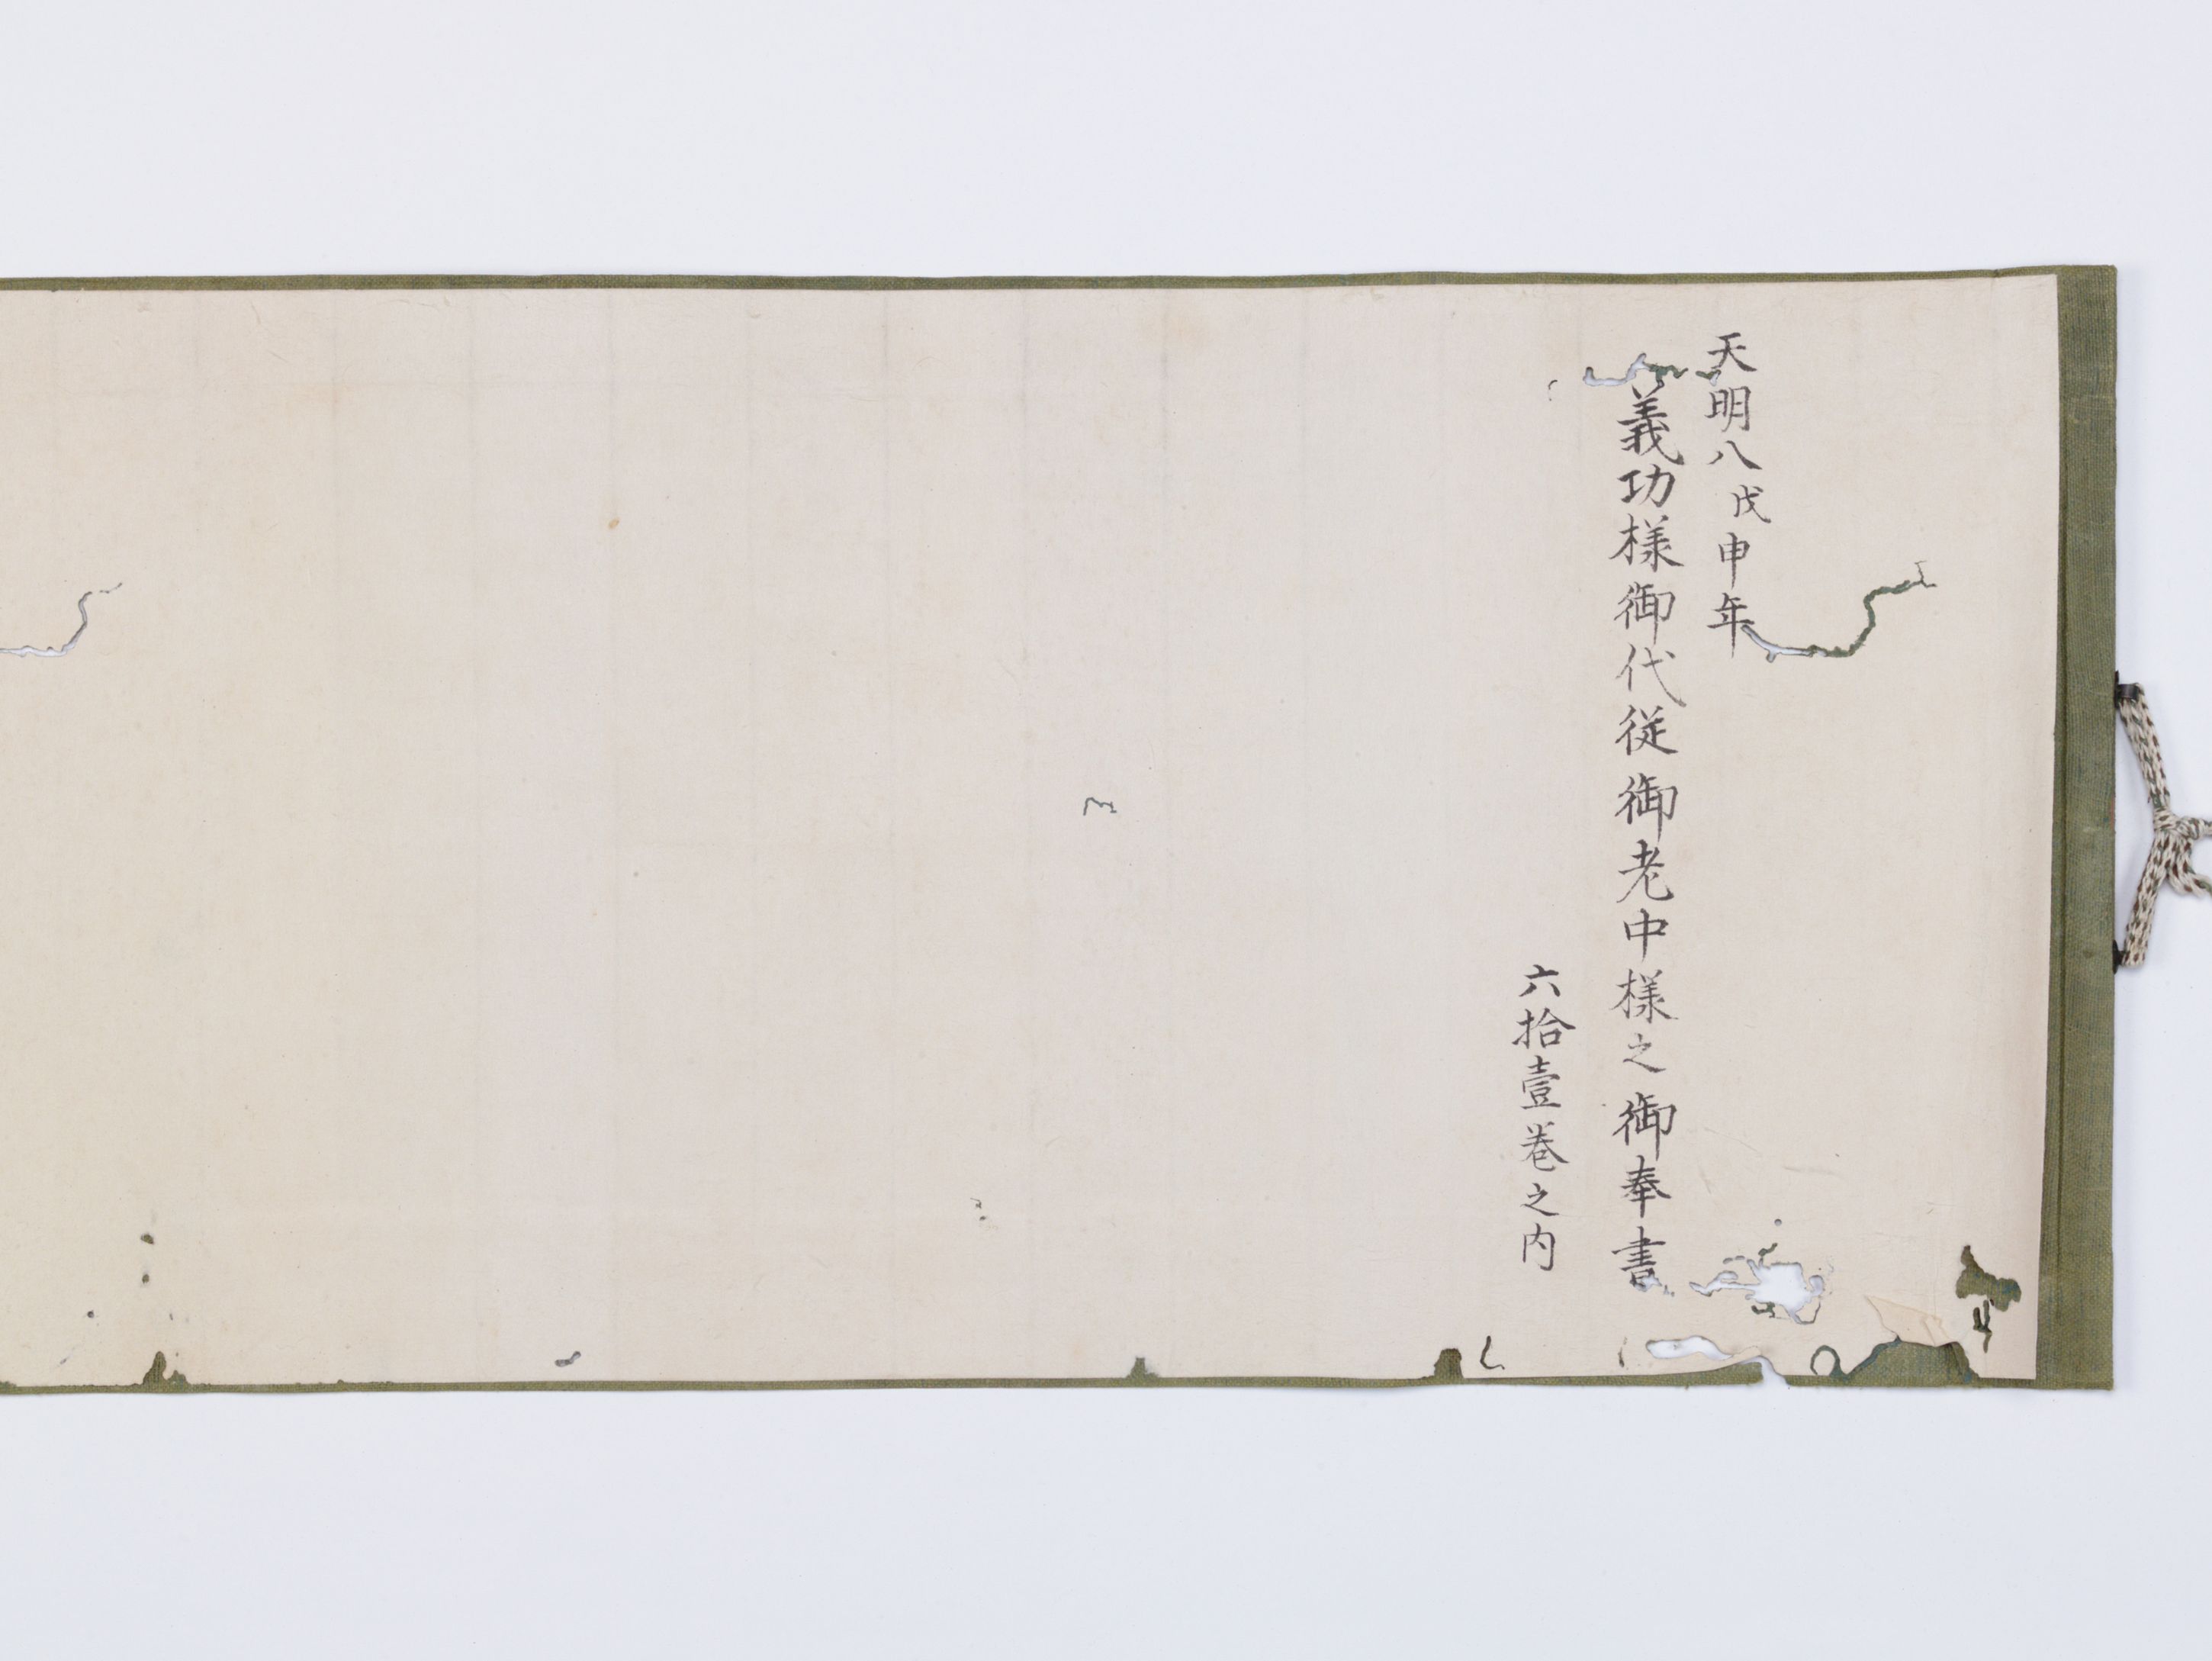 天明八戊申年
義功様御代従御老中様之御奉書
六拾壹巻之内